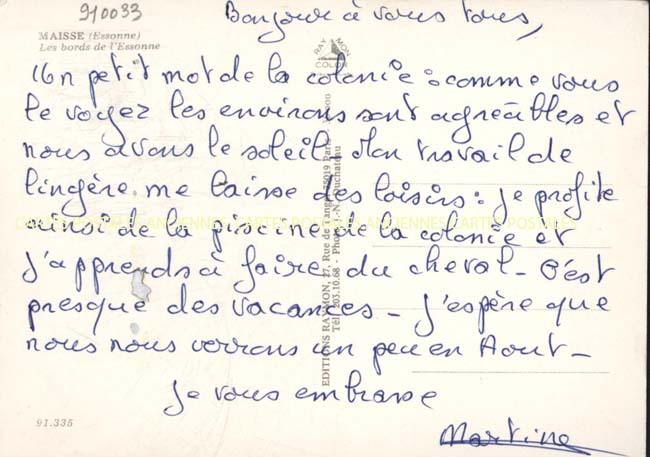 910033
Bonjour à vous tous,
MAISSE (Essonne)
Les bords de l'Essonne
RAYMON
Un petit mot de la colonie : comme vous
le voyez les environs sont agréables et
nous avons le soleil. Mon travail de
lingère me laisse des loisirs : je profite
ainsi de la piscine de la colonie et
j'apprends à faire du cheval - C'est
presque des vacances - J'espère que
nous nous verrons un peu en Août -
Je vous embrasse
Martine
91.335
EDITIONS RAYMON, 27, Rue de Tanger, 75019 Paris
Tél. 205.10.68 - Photo J.-N.